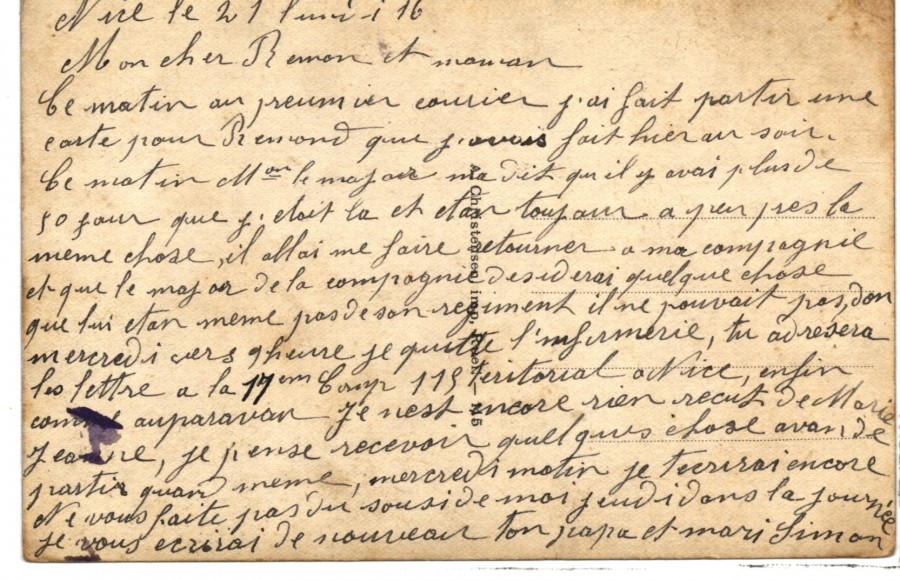 Nice le 21 lundi 16
Mon cher Remon et maman
Ce matin au preumier courier j'ai fait partir une
carte pour Remond que j'avais fait hier au soir.
Ce matin Mon le major ma dit qu'il y avai plus de
50 jour que j. etoit la et etan toujour a peu pres la
meme chose, il allai me faire retourner a ma compagnie
et que le major de la compagnie desiderai quelque chose
que lui etan meme pas de son regiment il ne pouvait pas, don
mercredi vers 9 heure je quitte l'infirmerie, tu adresera
les lettre a la 17em Comp 115 teritorial a Nice, enfin
comme auparavan Je nest encore rien recut de Marie
Jeanne, je pense recevoir quelques chose avan de
partir quand meme, mercredi matin je t'ecrirai encore
Ne vous faite pas du sousi de moi jeudi dans la journée
je vous ecrirai de nouveau ton papa et mari Simon
A. Christensen, imp.